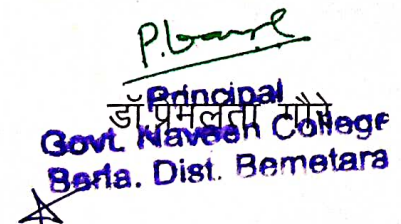 Principal
डॉ प्रेमलता गौरे
Govt. Naveen College
Berla. Dist. Bemetara